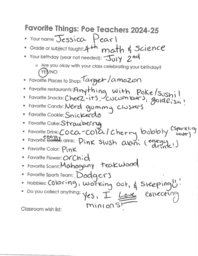 Favorite Things: Poe Teachers 2024-25
• Your name Jessica Pearl
• Grade or subject taught: 4th math & science
• Your birthday (year not needed): July 2nd
o Are you okay with your class celebrating your birthday?
YES/NO
• Favorite Places to Shop: Target/amazon
• Favorite restaurants: Anything with Poke/Sushi!
• Favorite Snacks: Cheez-its, cucumbers, goldfish!
• Favorite Candy: Nerd gummy clusters
• Favorite Cookie: Snickerdo
• Favorite Cake: Strawberry
• Favorite Drink: Coca-cola/Cherry bobbly (Sparkling water)
• Favorite drink: Pink slush alani (energy drink!)
• Favorite Color: Pink
• Favorite Flower: Orchid
• Favorite Scent: Mahogany teakwood
• Favorite Sports Team: Dodgers
• Hobbies: Coloring, working out, & sleeping!!
• Do you collect anything: Yes, I Love collecting
minions!
Classroom wish list: